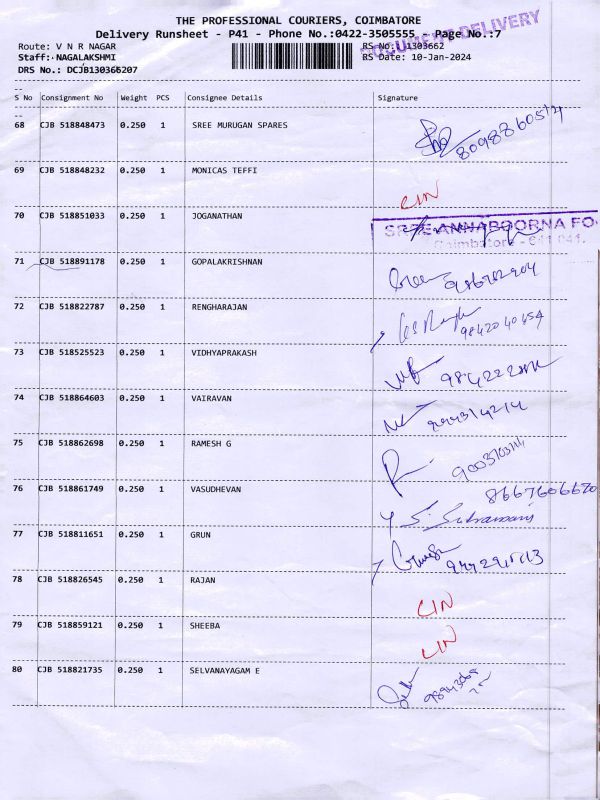 THE PROFESSIONAL COURIERS, COIMBATORE
Delivery Runsheet - P41 - Phone No.:0422-3505555 - Page No.:7
DOCUMENT DELIVERY
Route: V N R NAGAR RS No.: 1303662
Staff: NAGALAKSHMI RS Date: 10-Jan-2024
DRS No.: DCJB130366207
S No Consignment No Weight PCS Consignee Details Signature
68 CJB 518848473 0.250 1 SREE MURUGAN SPARES
69 CJB 518848232 0.250 1 MONICAS TEFFI CIN
70 CJB 518851033 0.250 1 JOGANATHAN
SREE ANNAPOORNA FO
Coimbatore - 641 041.
71 CJB 518891178 0.250 1 GOPALAKRISHNAN
72 CJB 518822787 0.250 1 RENGHARAJAN
73 CJB 518525523 0.250 1 VIDHYAPRAKASH
74 CJB 518864603 0.250 1 VAIRAVAN
75 CJB 518862698 0.250 1 RAMESH G
76 CJB 518861749 0.250 1 VASUDHEVAN 8667606620
77 CJB 518811651 0.250 1 GRUN
78 CJB 518826545 0.250 1 RAJAN CIN
79 CJB 518859121 0.250 1 SHEEBA CIN
80 CJB 518821735 0.250 1 SELVANAYAGAM E